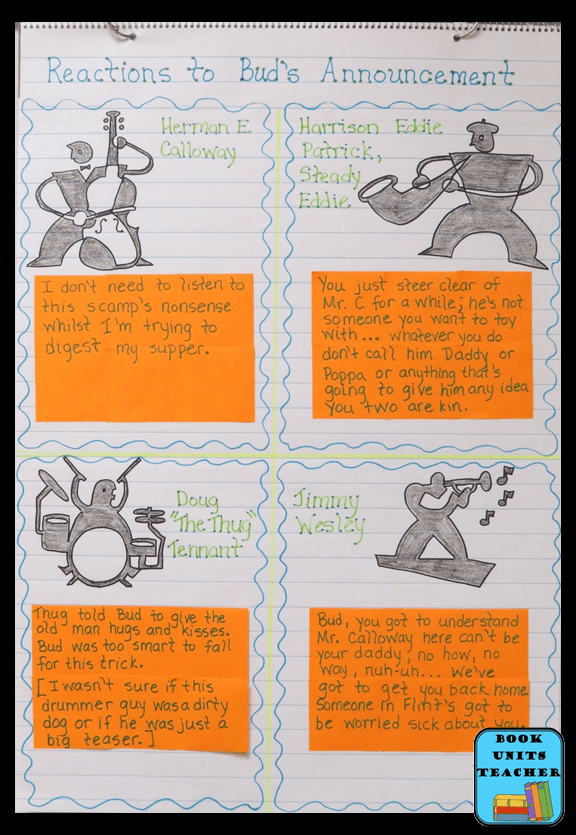 Reactions to Bud's Announcement
Herman E.
Calloway
I don't need to listen to
this scamp's nonsense
whilst I'm trying to
digest my supper.
Harrison Eddie
Patrick,
Steady
Eddie
You just steer clear of
Mr. C for a while; he's not
someone you want to toy
with... whatever you do
don't call him Daddy or
Poppa or anything that's
going to give him any idea
you two are kin.
Doug
"The Thug"
Tennant
Thug told Bud to give the
old man hugs and kisses.
Bud was too smart to fall
for this trick.
[I wasn't sure if this
drummer guy was a dirty
dog or if he was just a
big teaser.]
Jimmy
Wesley
Bud, you got to understand
Mr. Calloway here can't be
your daddy, no how, no
way, nuh-uh... We've
got to get you back home.
Someone in Flint's got to
be worried sick about you.
BOOK
UNITS
TEACHER